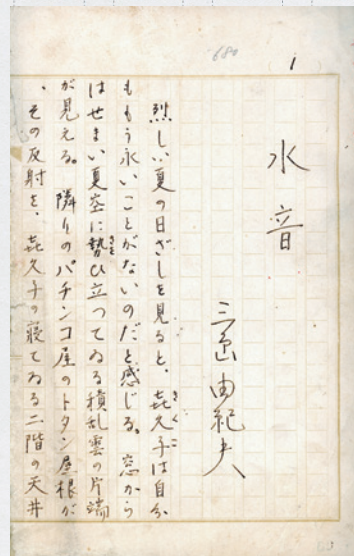 680
1
水音
三島由紀夫
烈しい夏の日ざしを見ると、喜久子は自分
きくこ
ももう永いことがないのだと感じる。窓から
はせまい夏空に勢ひ立つてゐる積乱雲の片端
が見える。隣りのパチンコ屋のトタン屋根が
、その反射を、喜久子の寝てゐる二階の天井